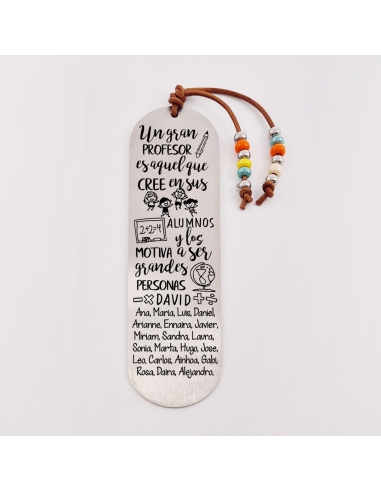 Un gran
PROFESOR
es aquel que
CREE en sus
ALUMNOS
2+2=4
y los
MOTIVA a ser
grandes
PERSONAS
- × DAVID + ÷
Ana, Maria, Luis, Daniel,
Arianne, Ennaira, Javier,
Miriam, Sandra, Laura,
Sonia, Marta, Hugo, Jose,
Leo, Carlos, Ainhoa, Gabi,
Rosa, Daira, Alejandro,